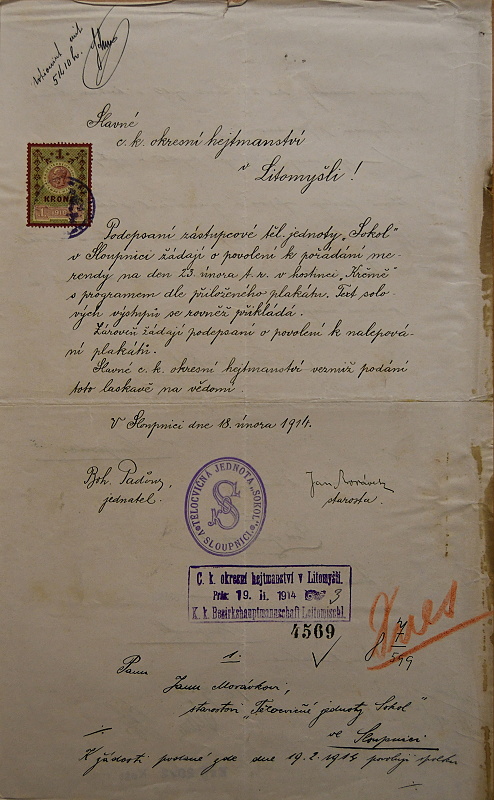 Slavné
c. k. okresní hejtmanství
v Litomyšli!
1
KRONE
Podepsaní zástupcové těl. jednoty „Sokol"
v Sloupnici žádají o povolení k pořádání me-
rendy na den 23. února t. r. v hostinci „Krčmě"
s programem dle přiloženého plakátu. Text solo-
vých výstupů se rovněž přikládá.
Zároveň žádají podepsaní o povolení k nalepová-
ní plakátů.
Slavné c. k. okresní hejtmanství vezmiž podání
toto laskavě na vědomí.
V Sloupnici dne 18. února 1914.
Boh.
jednatel.
TĚLOCVIČNÁ JEDNOTA „SOKOL"
V SLOUPNICI
Jan
starosta
C. k. okresní hejtmanství v Litomyšli.
Präs. 19. II. 1914 3
K. k. Bezirkshauptmannschaft Leitomischl.
4569
Dnes
1.
Panu
Janu Morávkovi,
starostovi „Tělocvičné jednoty Sokol"
ve Sloupnici
K žádosti podané zde dne 19.2.1914 povoluji spolku